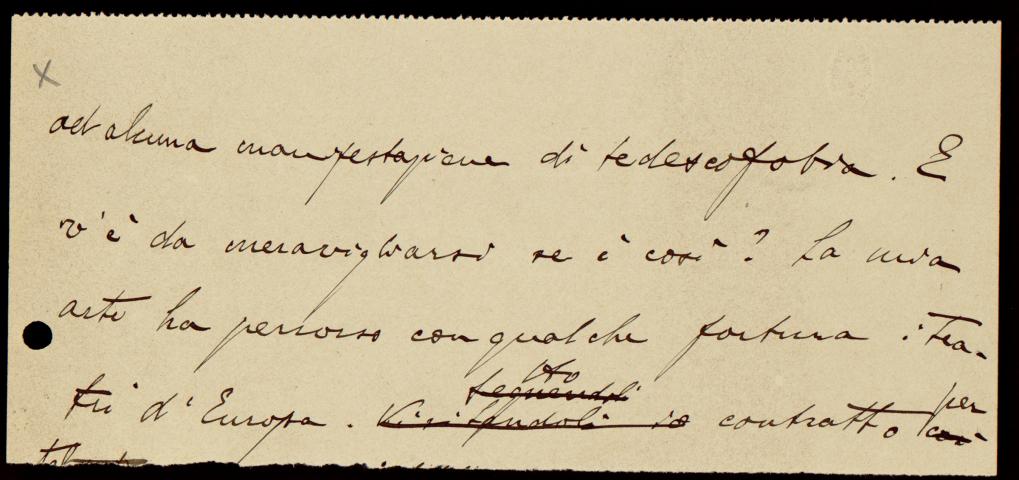 ad alcuna manifestazione di tedescofobia. E
v'è da meravigliarsi se è così? La mia
arte ha percorso con qualche fortuna i tea-
tri d'Europa. Visitandoli io contratto per